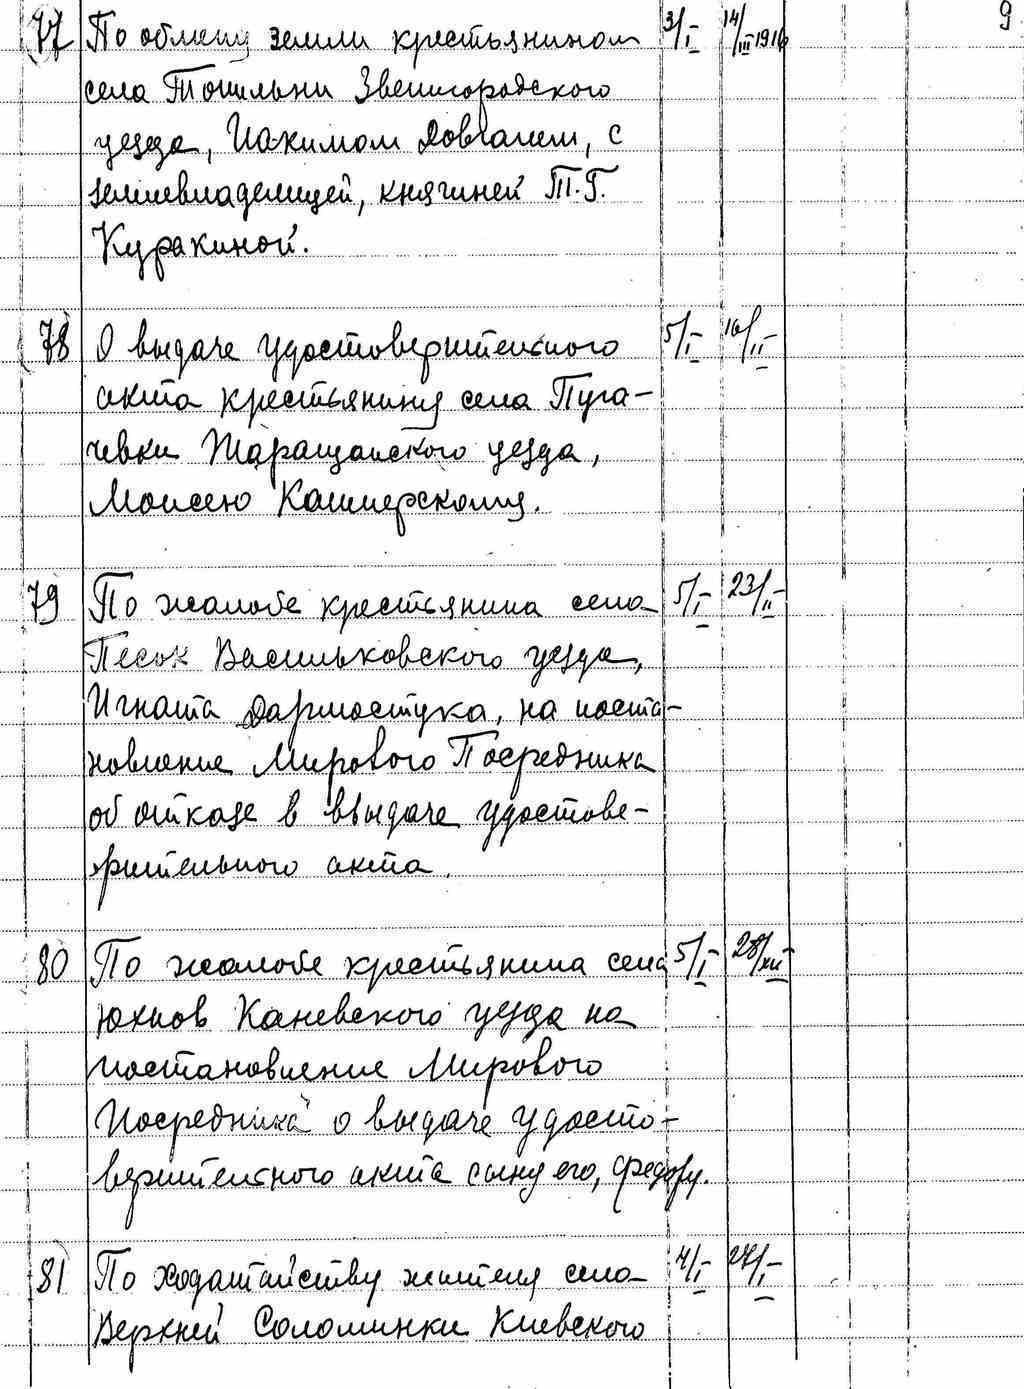 9
77 По обмену земли крестьянином 3/I 14/III 1916
села Топильни Звенигородского
уезда, Иакимом Довганем, с
землевладелицей, княгиней Т.Г.
Куракиной.
78 О выдаче удостоверительного 5/I 16/II
акта крестьянину села Пуга-
чевки Таращанского уезда,
Моисею Кашперскому.
79 По жалобе крестьянина села 5/I 23/II
Песок Васильковского уезда,
Игната Дармостука, на поста-
новление Мирового Посредника
об отказе в выдаче удостове-
рительного акта.
80 По жалобе крестьянина села 5/I 28/XII
Юхнов Каневского уезда на
постановление Мирового
Посредника о выдаче удосто-
верительного акта сыну его, Федору.
81 По ходатайству жителя села 4/I 27/I
Верхней Соломинки Киевского